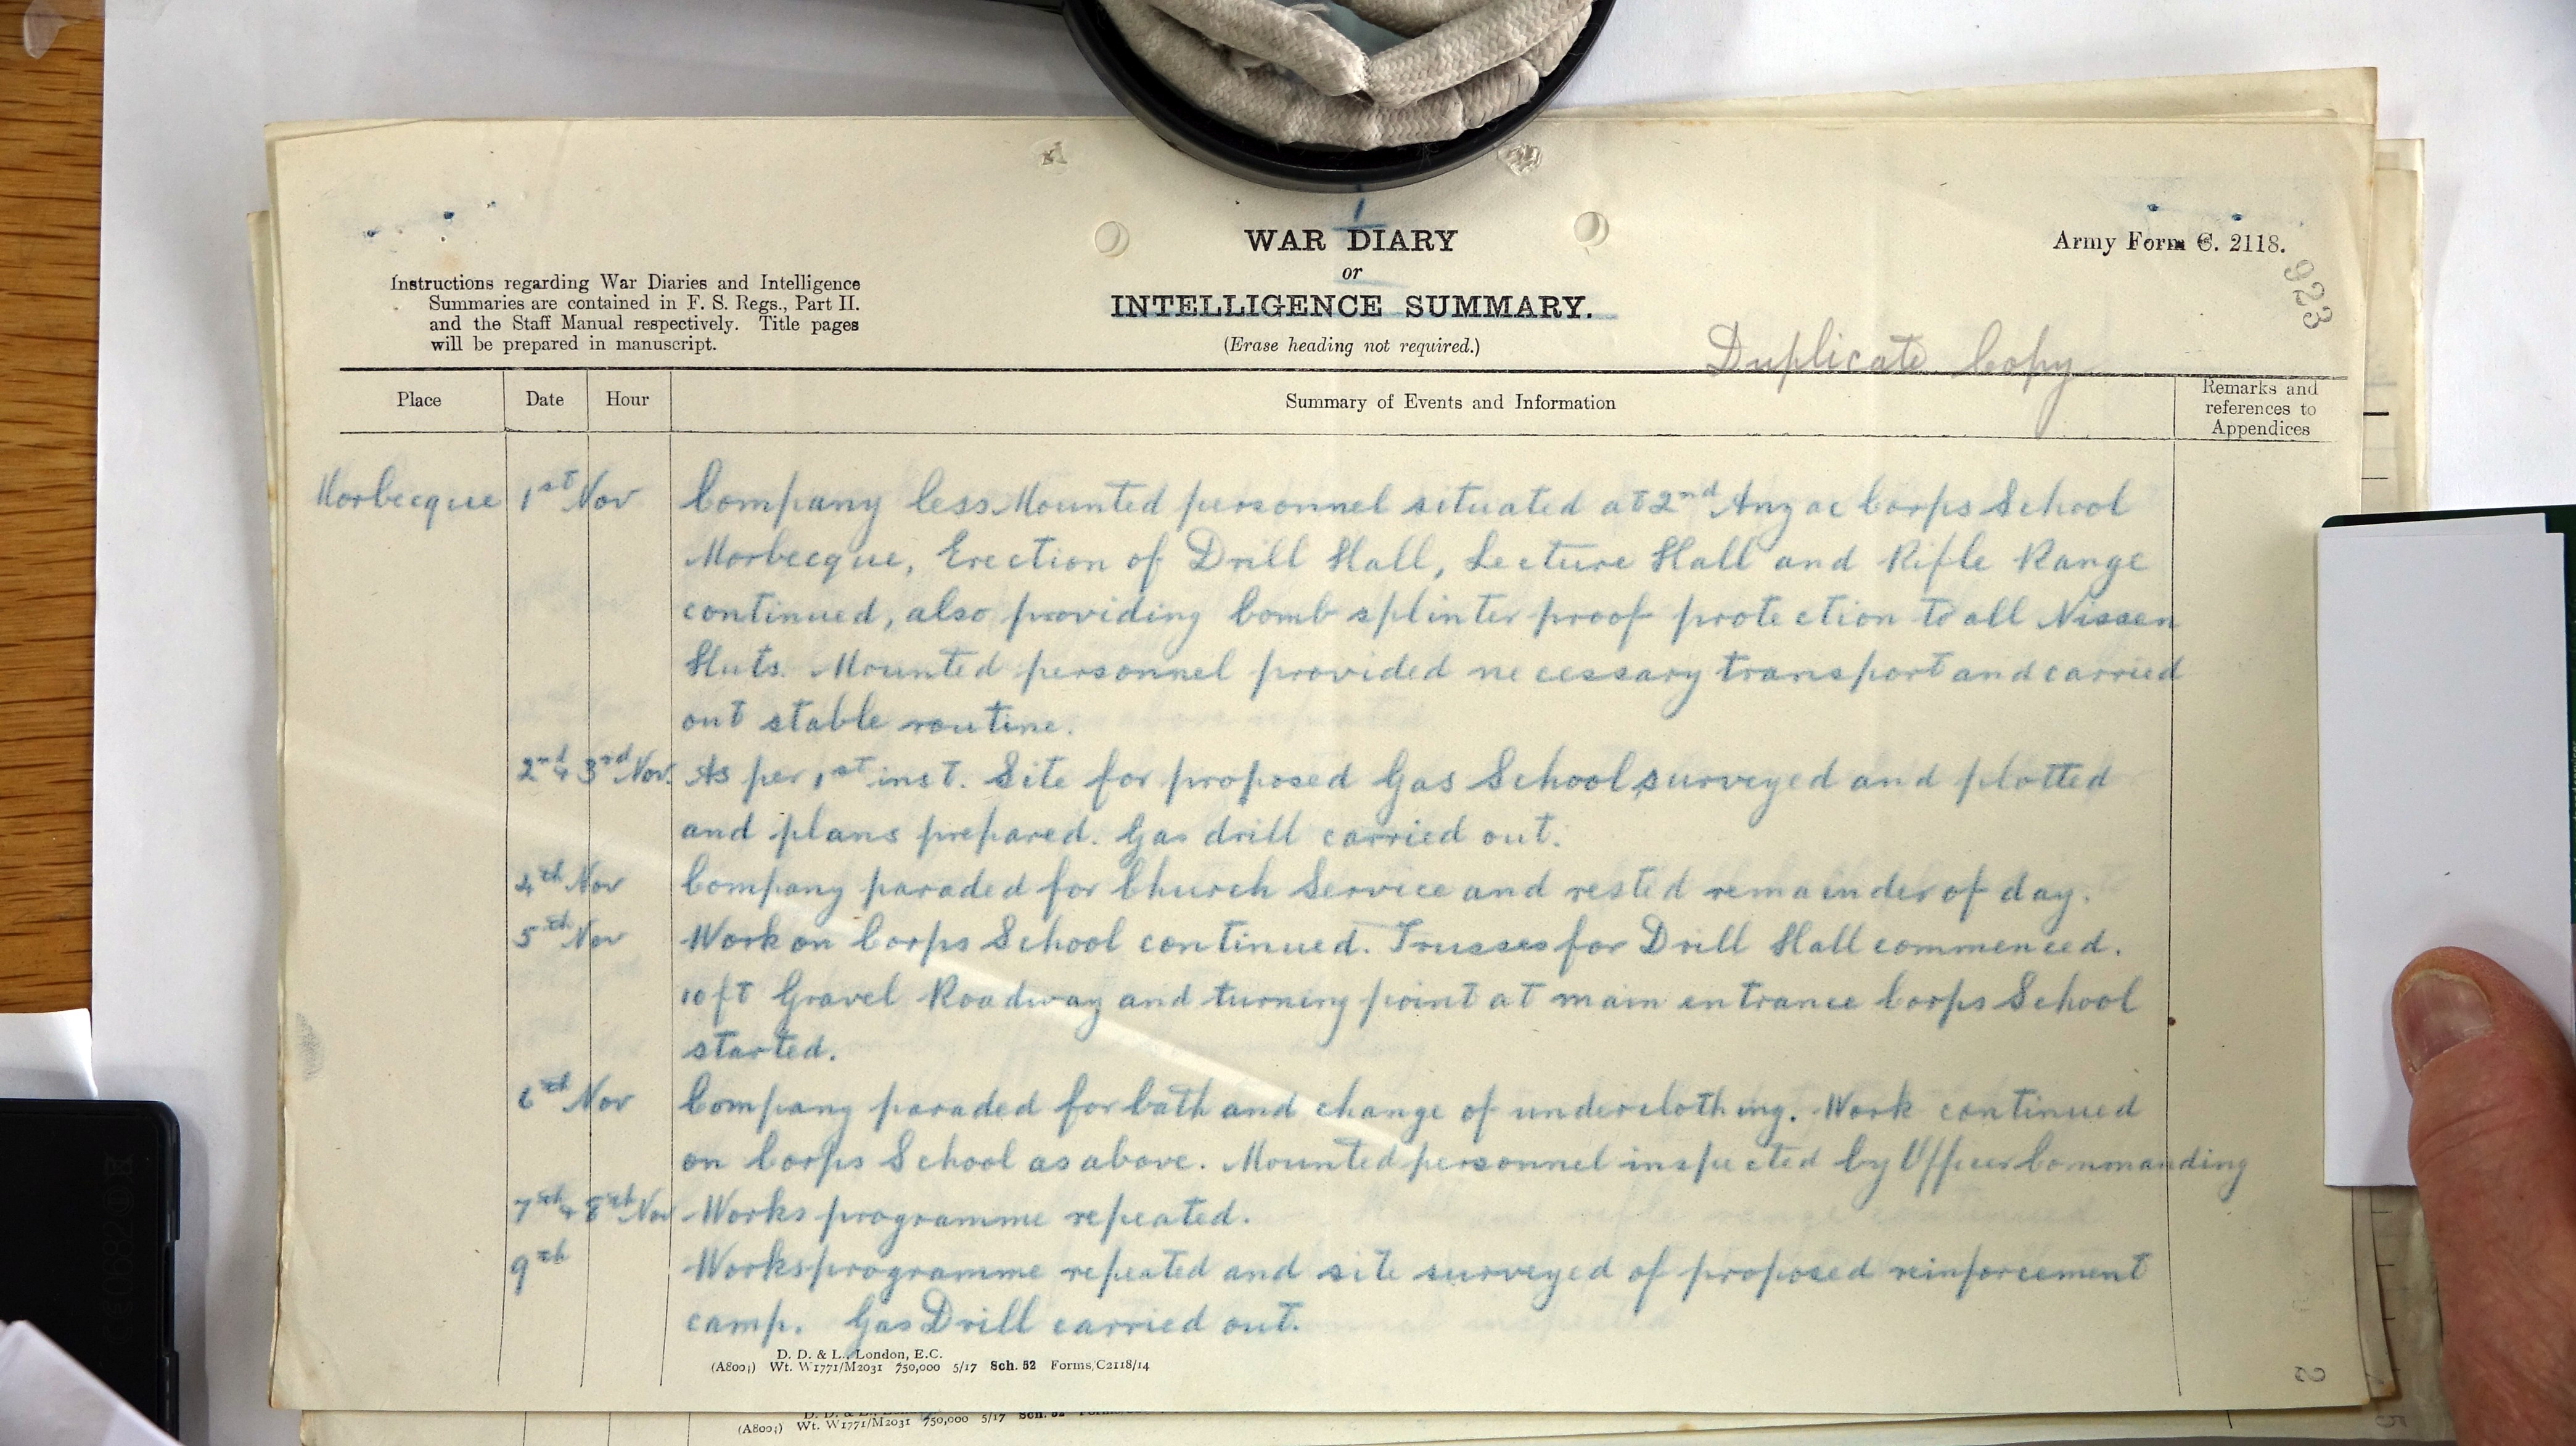 WAR DIARY
or
INTELLIGENCE SUMMARY.
(Erase heading not required.)
Army Form C. 2118.
923
Instructions regarding War Diaries and Intelligence
Summaries are contained in F. S. Regs., Part II.
and the Staff Manual respectively. Title pages
will be prepared in manuscript.
Duplicate Copy
Place Date Hour Summary of Events and Information Remarks and
references to
Appendices
Morbecque 1st Nov Company less Mounted personnel situated at 2nd Anzac Corps School
Morbecque, Erection of Drill Hall, Lecture Hall and Rifle Range
continued, also providing bomb splinter proof protection to all Nissen
Huts. Mounted personnel provided necessary transport and carried
out stable routine.
2nd & 3rd Nov. As per 1st inst. Site for proposed Gas School surveyed and plotted
and plans prepared. Gas drill carried out.
4th Nov Company paraded for Church Service and rested remainder of day.
5th Nov Work on Corps School continued. Trusses for Drill Hall commenced.
10 ft Gravel Roadway and turning point at main entrance Corps School
started.
6th Nov Company paraded for bath and change of underclothing. Work continued
on Corps School as above. Mounted personnel inspected by Officer Commanding
7th & 8th Nov Works programme repeated.
9th Works programme repeated and site surveyed of proposed reinforcement
camp. Gas Drill carried out.
D. D. & L., London, E.C.
(A8001) Wt. W1771/M2031 750,000 5/17 Sch. 52 Forms/C2118/14
2
(A8001) Wt. W1771/M2031 750,000 5/17 Sch. 52